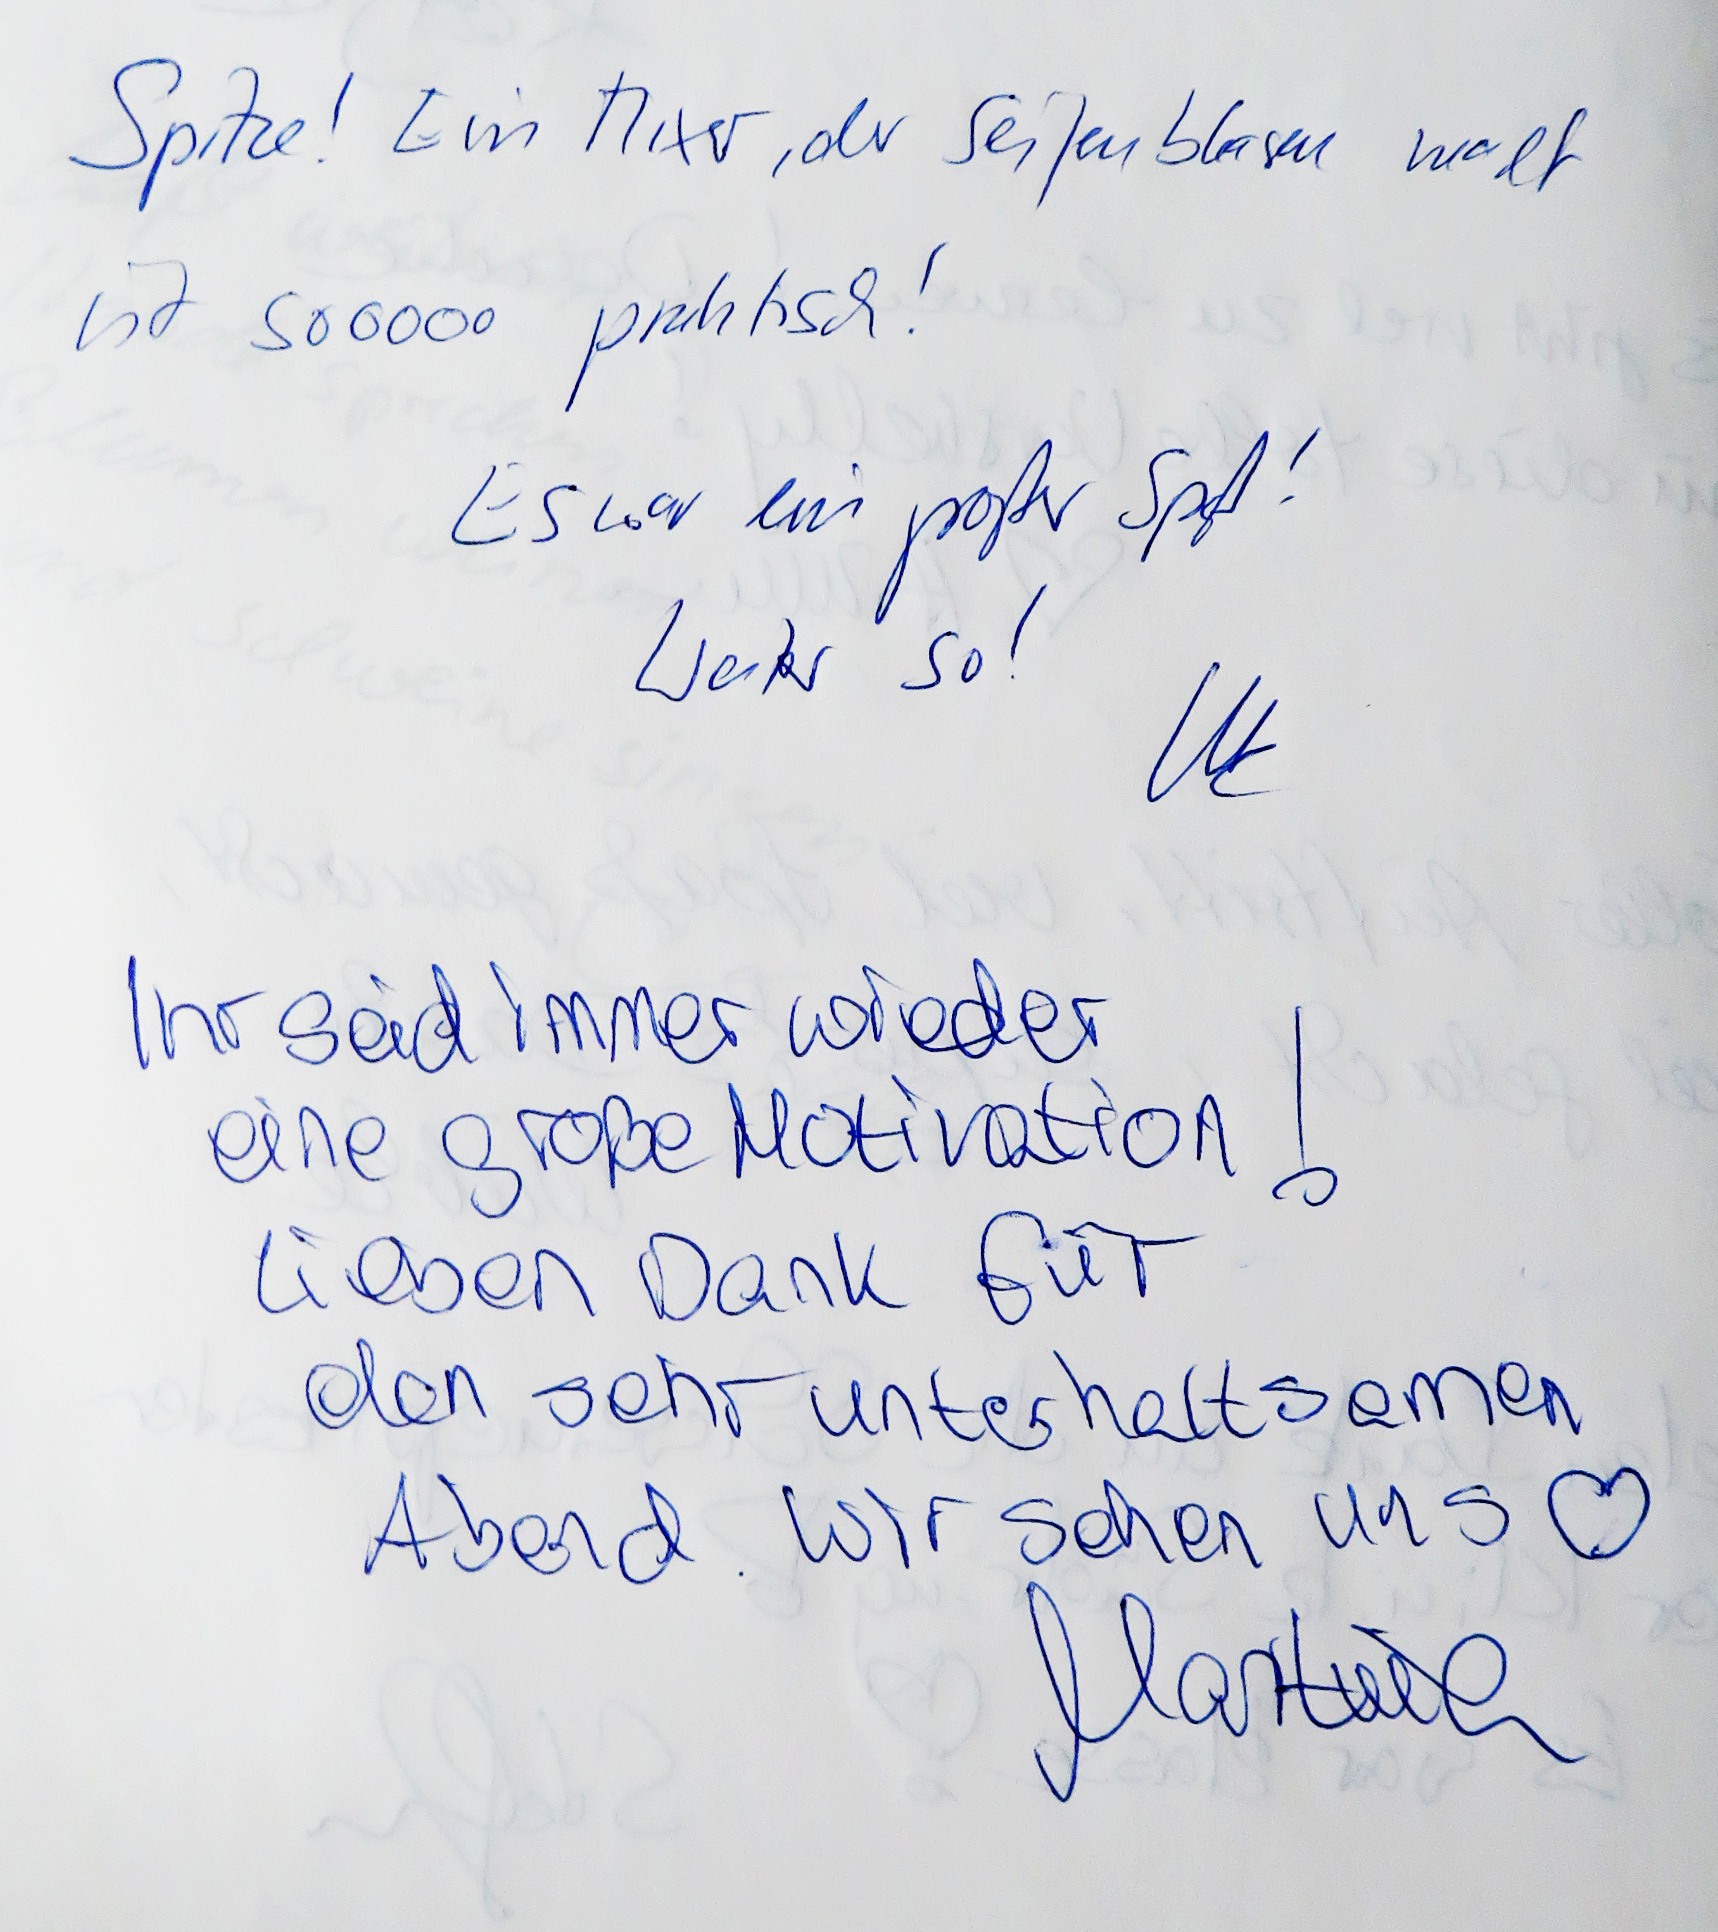 Spitze! Ein Mixer, der Seifenblasen macht
ist soooooo praktisch!
Es war ein großer Spaß!
Weiter so!
Ute
Ihr seid immer wieder
eine große Motivation!
Lieben Dank für
den sehr unterhaltsamen
Abend. Wir sehen uns ♡
Martina